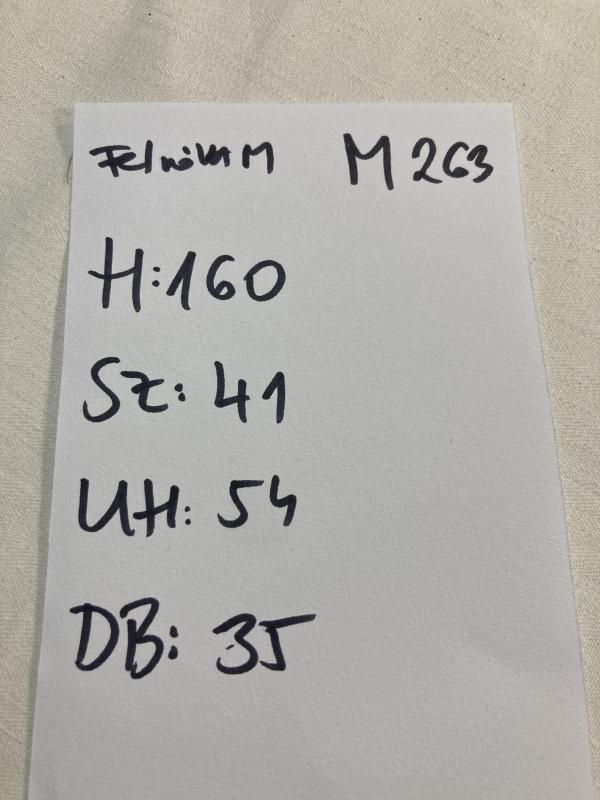 Felnőtt M M 263
H:160
Sz: 41
UH: 54
DB: 35